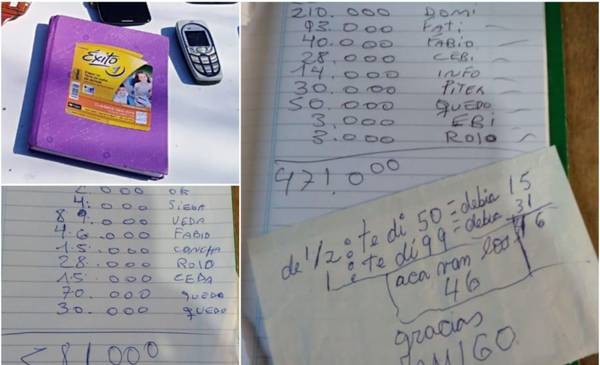 Éxito
2.000
4. SIEGA
8 .000 VEDA
4.6.000 FABIO
1.5.000 CONCHA
28.000 ROLO
15.000 CEBA
70.000 QUEDO
30.000 QUEDO
81.000
210.000 DOMI
93.000 FATI
40.000 FABIO
28.000 CEBI
14.000 INFO
30.000 PITER
50.000 QUEDO
3.000 EBI
3.000 ROLO
471.000
de 1/2 : te di 50 = debia 15
1 : te di 99 = debia 31
aca van los
46
gracias
AMIGO